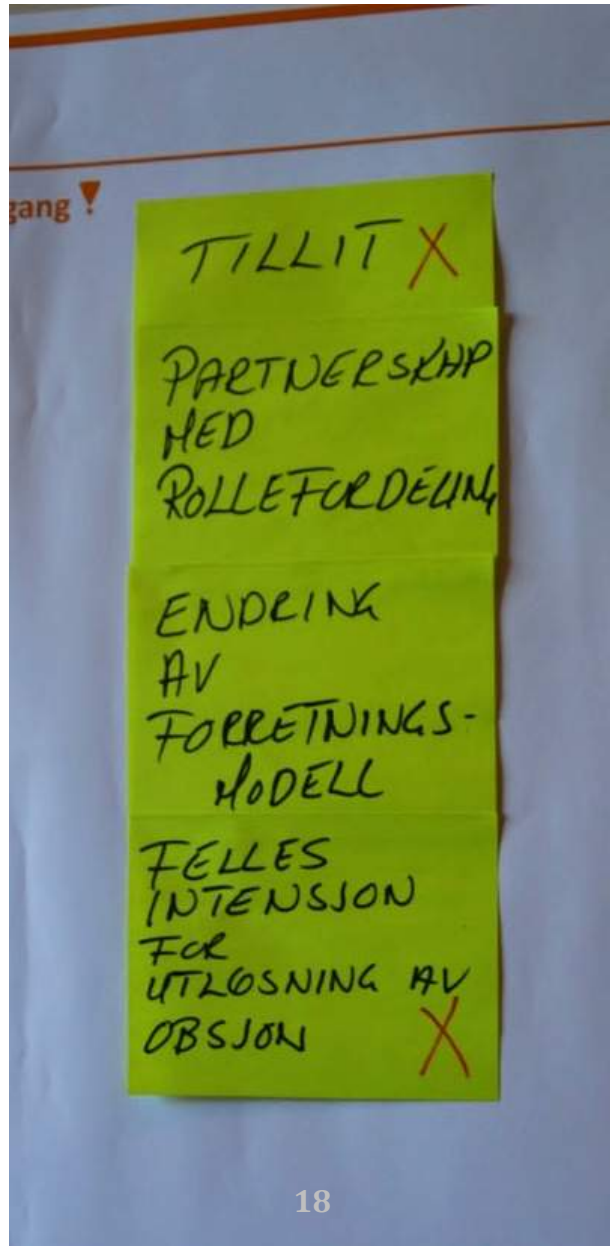 gang !
TILLIT X
PARTNERSKAP
MED
ROLLEFORDELING
ENDRING
AV
FORRETNINGS-
MODELL
FELLES
INTENSJON
FOR
UTLØSNING AV
OBSJON X
18